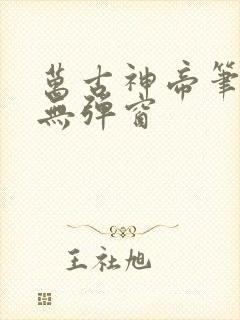 萬古神帝筆
無彈窗
王社旭